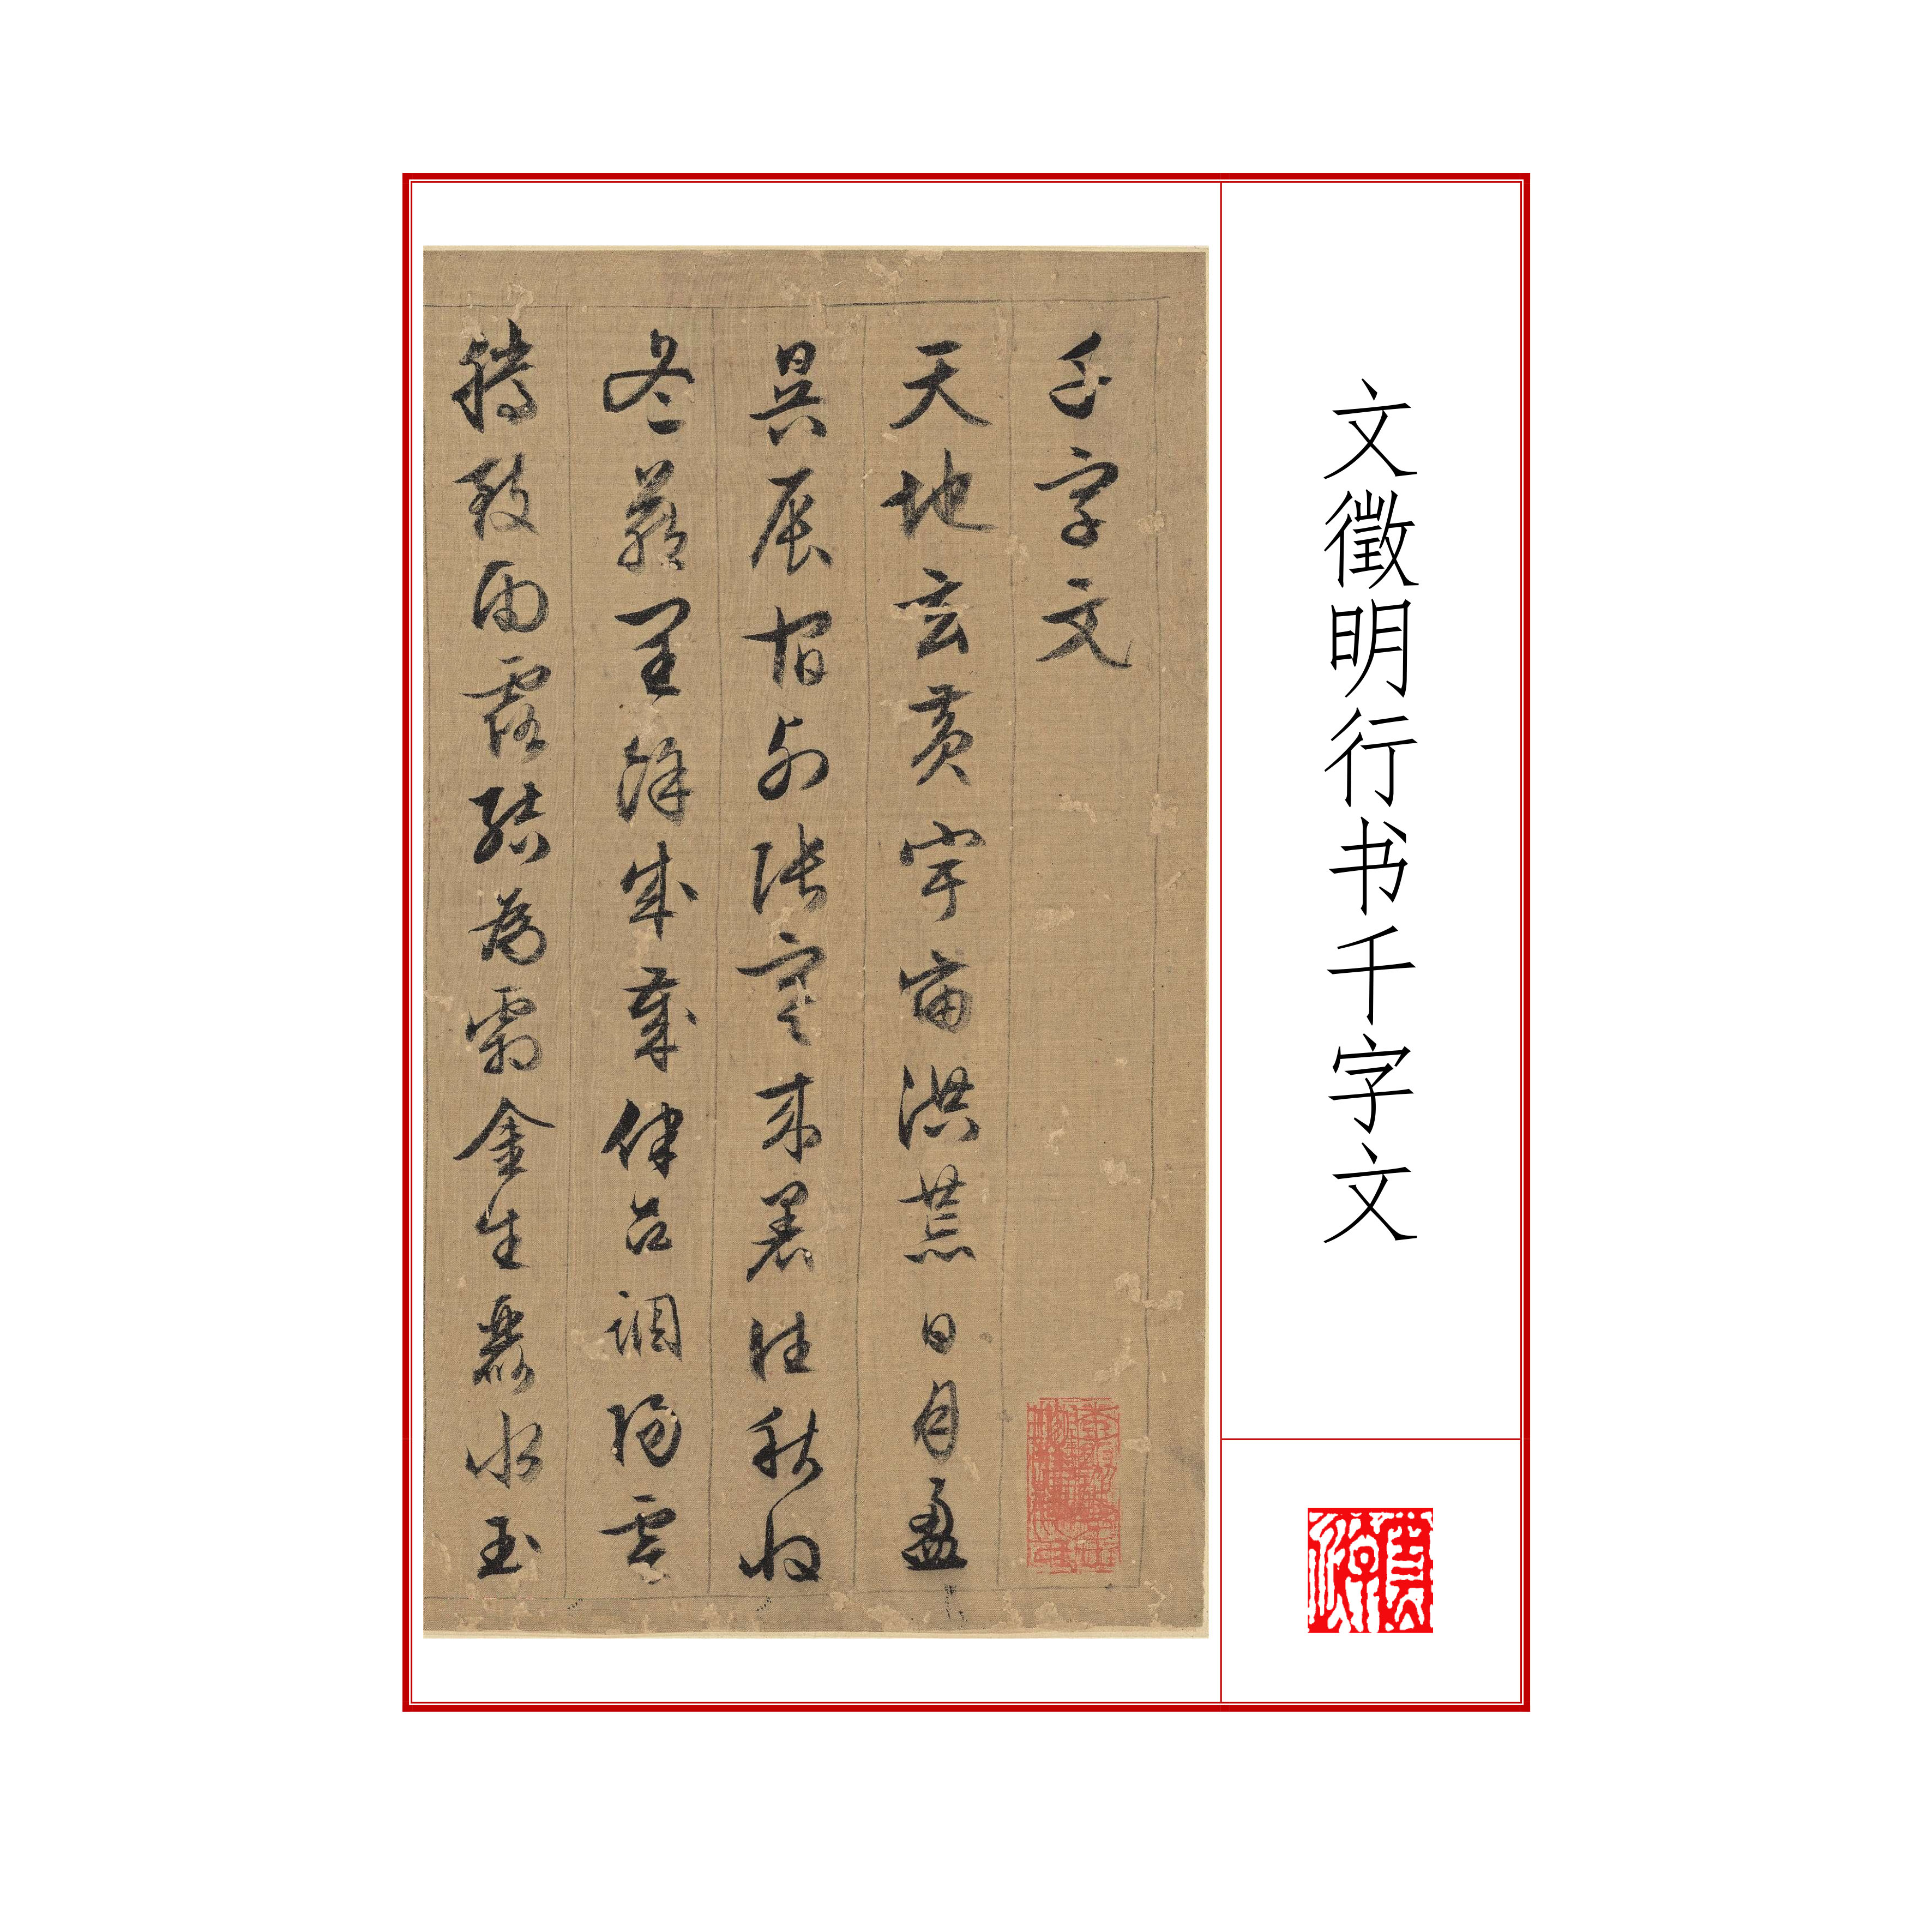 文徵明行书千字文
千字文
天地玄黄宇宙洪荒日月盈
昃辰宿列張寒来暑往秋收
冬藏閏餘成歲律吕調陽雲
騰致雨露結為霜金生麗水玉